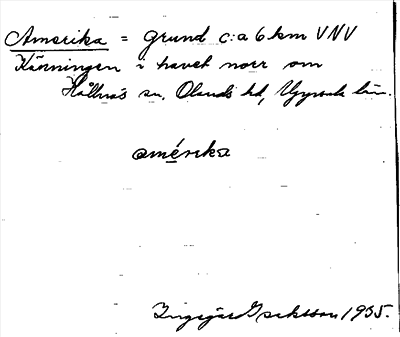 Amerika = grund c:a 6 km VNV
Känningen i havet norr om
Hållnäs sn. Olands hd, Uppsala län.
amérika
Ingegär Isaksson 1935.